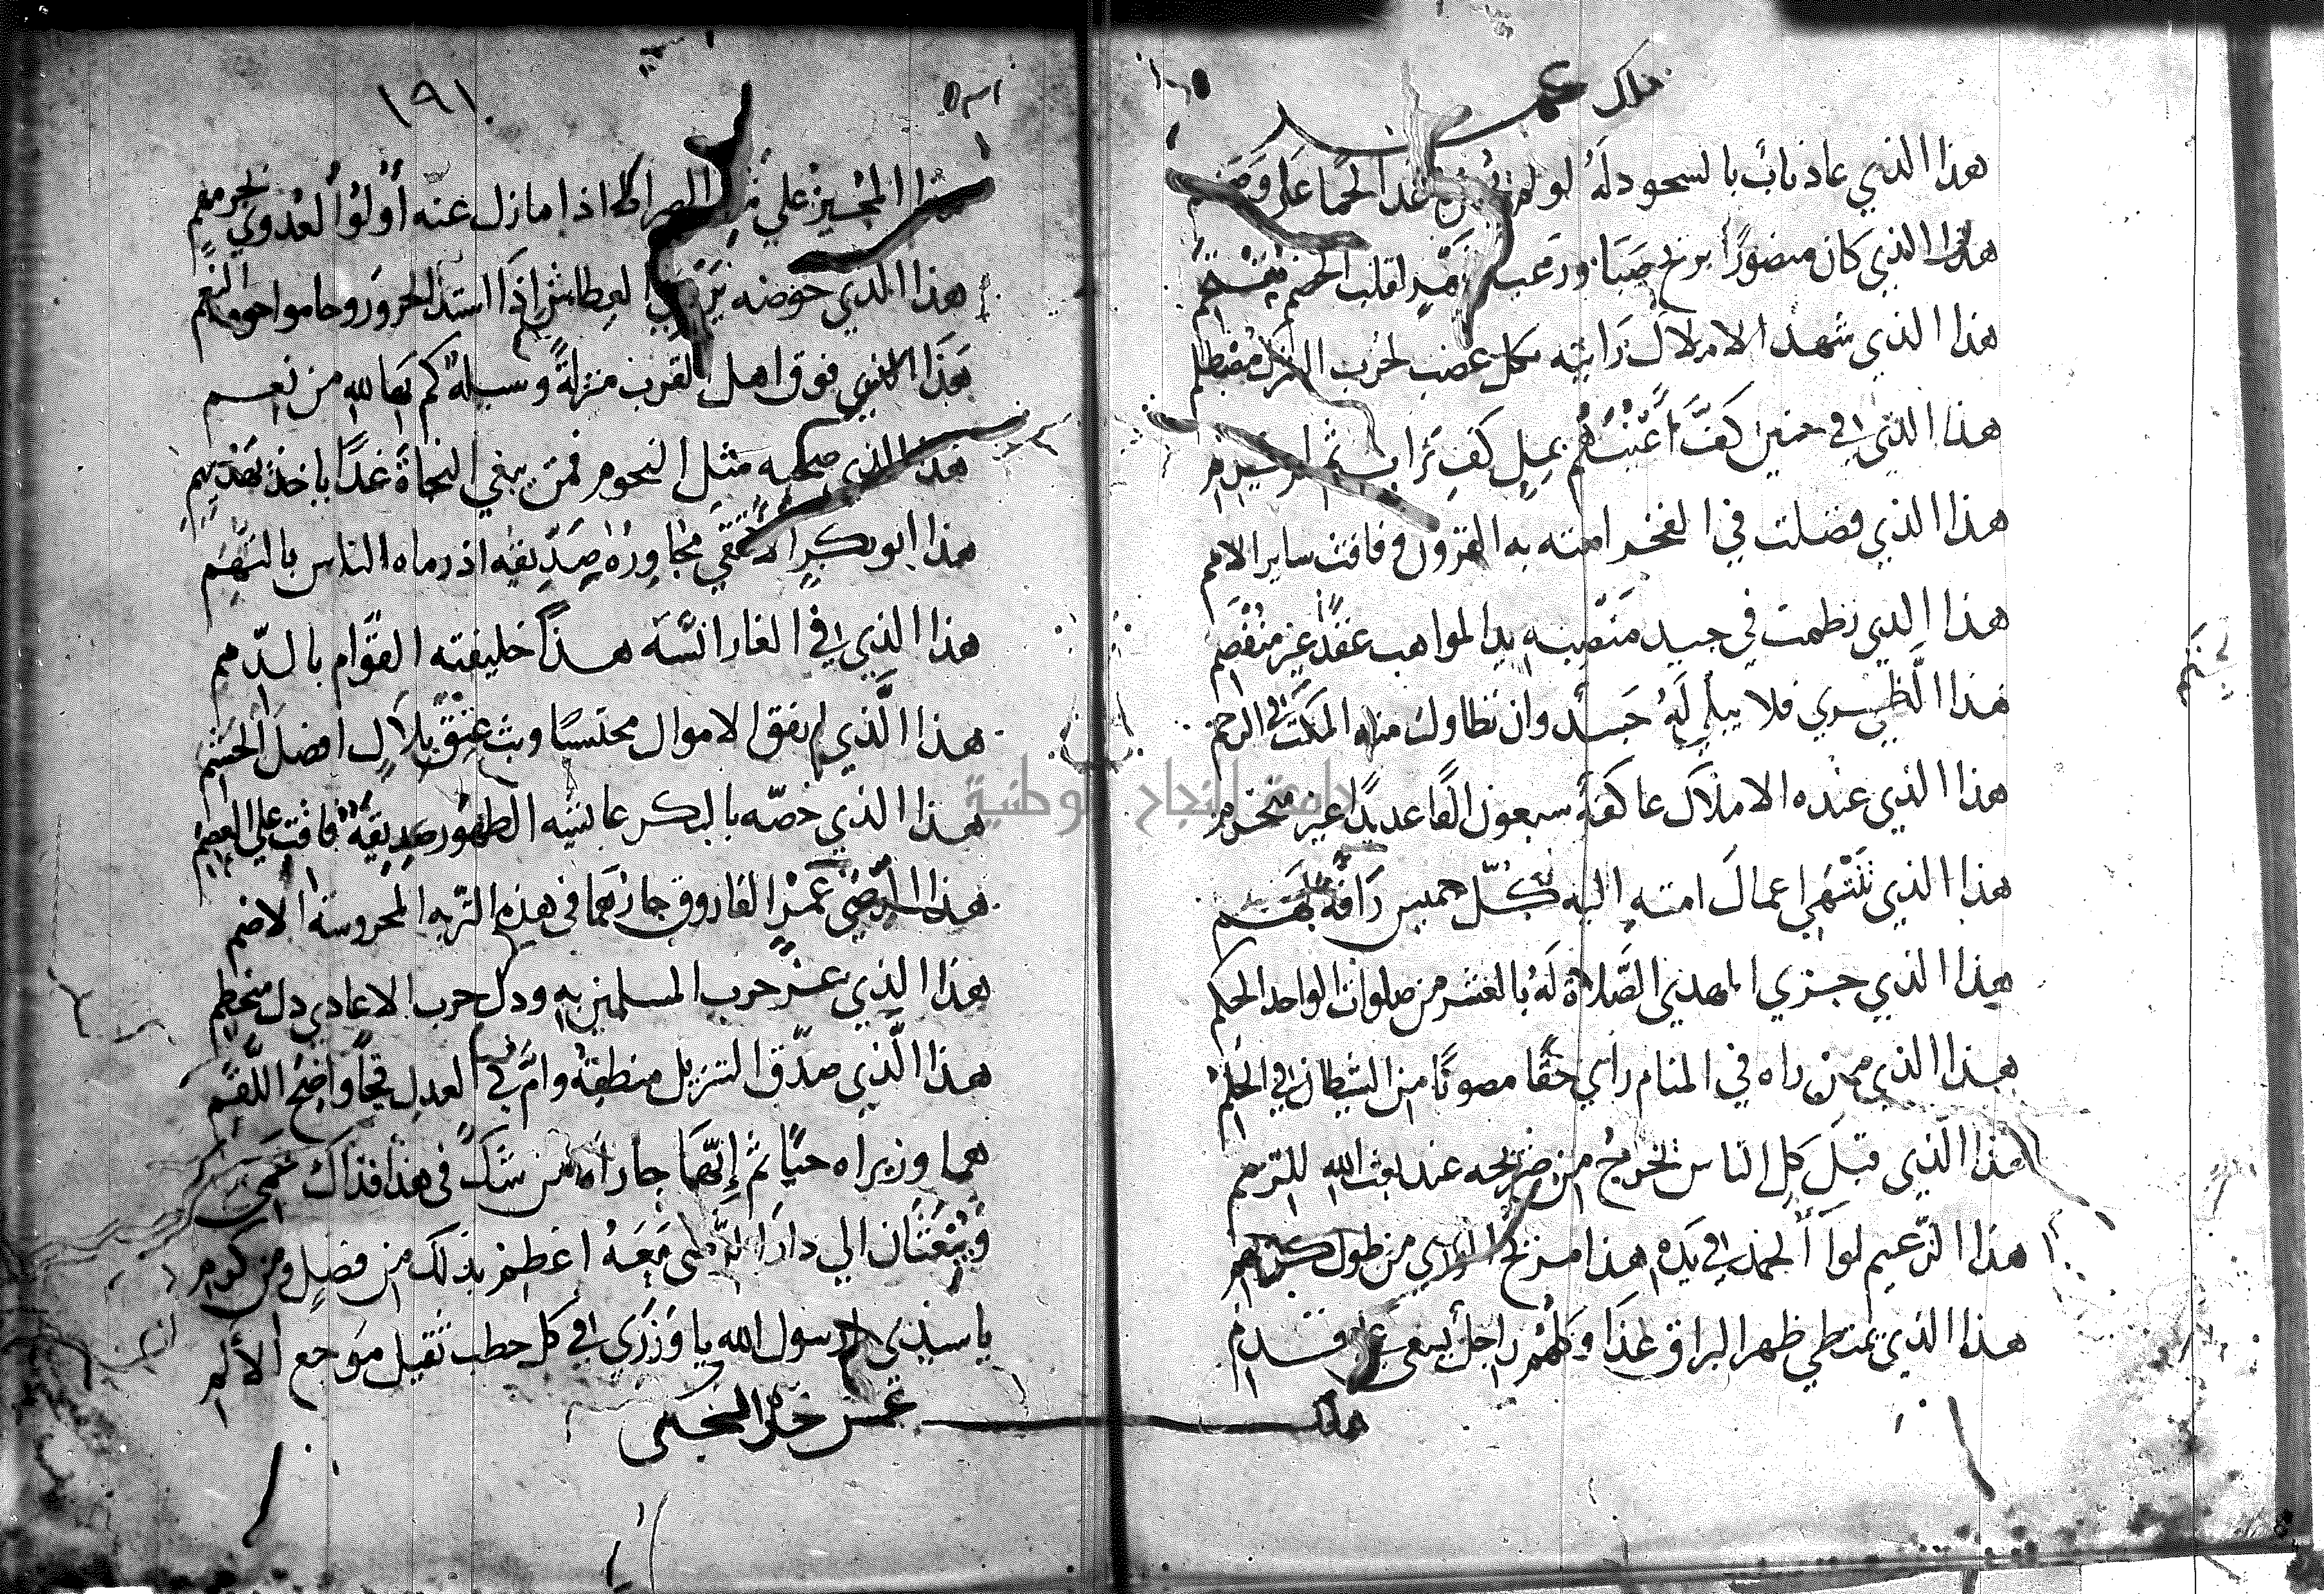 هذا الذي عاذ ناب بالسجود له لو لم
هذا الذي كان منصورًا بريح صبا ورعب
هذا الذي شهد الاملاك رايته بكل عضب لحرب الشرك مصطلم
هذا الذي في حنين كف اعينهم بملء كف تراب ثم
هذا الذي فضلت في الفخر امته به القرون وفاقت ساير الامم
هذا الذي نظمت في جيد منصبه يد المواهب عقدًا غير منفصم
هذا الطري فلا يبلى له جسد وان تطاول منه المكث في الرجم
هذا الذي عنده الاملاك عاكفة سبعون الفا عديدًا غير منخرم
هذا الذي تنتهي اعمال امته اليه كل خميس رافة بهم
هذا الذي جزي المهدي الصلاة له بالعشر من صلوات الواحد الحكم
هذا الذي من راه في المنام راى حقا مصونًا من الشيطان في الحلم
هذا الذي قبل كل الناس يخرج من ضريحه عند بعث الله للرمم
هذا الزعيم لوآ الحمد في يده هذا مزيح الورى من طول كربهم
هذا الذي يمتطي ظهر البراق غدا وكلهم راجل يسعى على قدم
هذا
١٩١
هذا المجيز على متن الصراط اذا ما زل عنه أولوا العدوى بجرمهم
هذا الذي حوضه يروي العطاش إذا اشتد الحرور وحاموا حومة النعم
هذا الذي فوق اهل القرب منزلة وسيلة كم بها لله من نعم
هذا الذي صحبه مثل النجوم فمن يبغي النجاة غدًا ياخذ بهديهم
هذا ابو بكر التقي مجاوره صديقه اذ رماه الناس بالتهم
هذا الذي في الغار انسه هذا خليفته القوام بالذمم
هذا الذي انفق الاموال محتسبًا وبث عتق بلال افضل الحشم
هذا الذي خصه بالبكر عايشه الطهور صديقة فاقت على العصم
هذا الرضى عمر الفاروق جارهما في هذه التربه المحروسة الاضم
هذا الذي عز حزب المسلمين به وذل حزب الاعادي ذل منحطم
هذا الذي صدق التنزيل منطقه وام في العدل فجا واضح اللقم
هما وزيراه حيًا ثم إنهما جاراه من شك في هذا فذاك عمى
ويبعثان الي دار معه اعظم بذلك من فضل ومن كرم
يا سيدي يا رسول الله يا وزري في كل خطب ثقيل موجع الألم